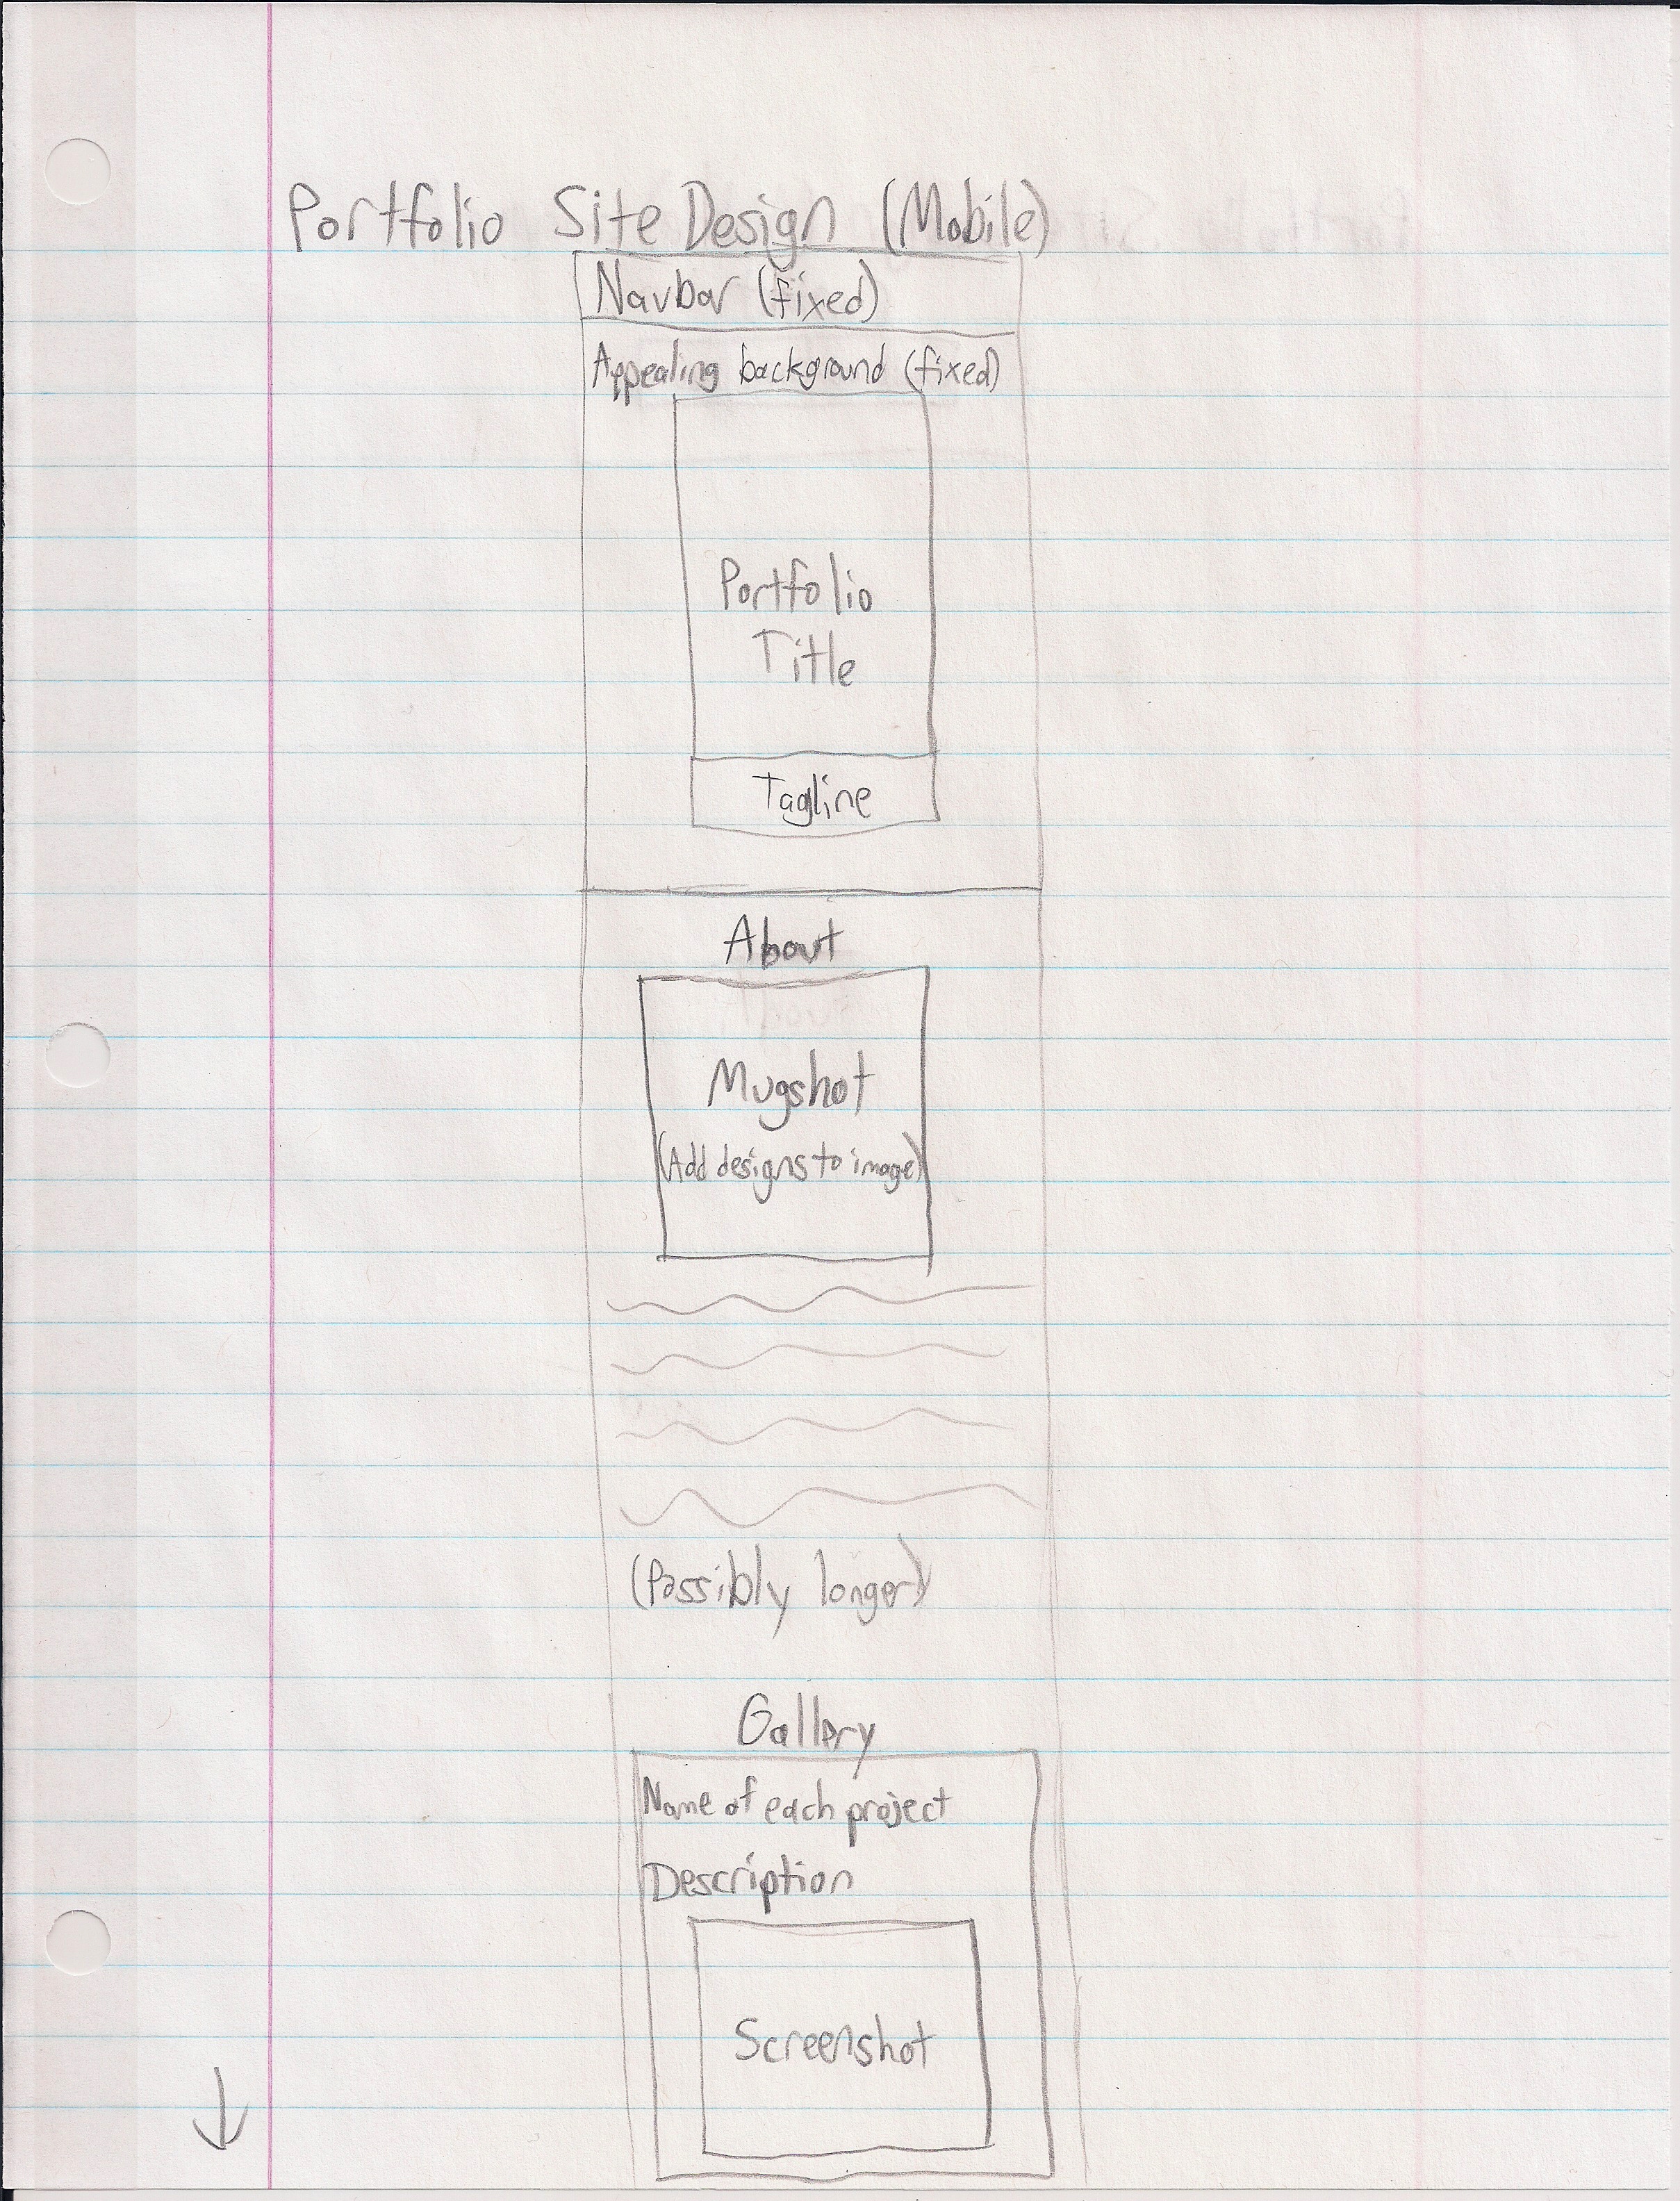 Portfolio Site Design (Mobile)
Navbar (fixed)
Appealing background (fixed)
Portfolio
Title
Tagline
About
Mugshot
(Add designs to image)
(Possibly longer)
Gallery
Name of each project
Description
Screenshot